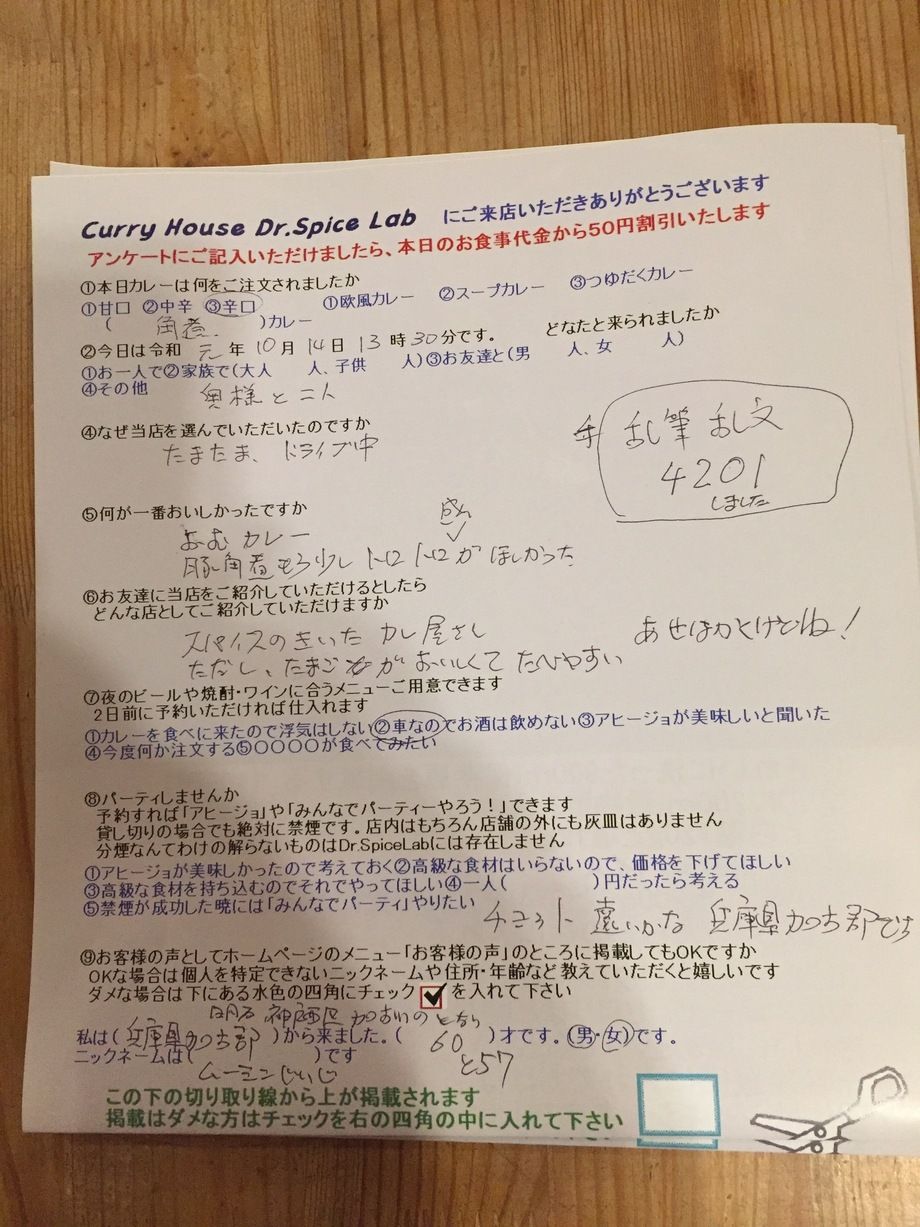 Curry House Dr.Spice Lab にご来店いただきありがとうございます
アンケートにご記入いただけましたら、本日のお食事代金から50円割引いたします
①本日カレーは何をご注文されましたか
①甘口 ②中辛 ③辛口 ①欧風カレー ②スープカレー ③つゆだくカレー
( 角煮. )カレー
②今日は令和 元 年 10 月 14 日 13 時 30 分です。 どなたと来られましたか
①お一人で②家族で(大人 人、子供 人)③お友達と(男 人、女 人)
④その他 奥様と二人
④なぜ当店を選んでいただいたのですか
たまたま、ドライブ中
乱筆 乱文
4201
しました
⑤何が一番おいしかったですか
カレー
感
豚角煮もう少しトロトロがほしかった
⑥お友達に当店をご紹介していただけるとしたら
どんな店としてご紹介していただけますか
スパイスのきいた カレー屋さん
ただし、たまごがおいしくてたべやすい
あせはかくけどね!
⑦夜のビールや焼酎・ワインに合うメニューご用意できます
2日前に予約いただければ仕入れます
①カレーを食べに来たので浮気はしない②車なのでお酒は飲めない③アヒージョが美味しいと聞いた
④今度何か注文する⑤〇〇〇〇が食べてみたい
⑧パーティしませんか
予約すれば「アヒージョ」や「みんなでパーティーやろう!」できます
貸し切りの場合でも絶対に禁煙です。店内はもちろん店舗の外にも灰皿はありません
分煙なんてわけの解らないものはDr.SpiceLabには存在しません
①アヒージョが美味しかったので考えておく②高級な食材はいらないので、価格を下げてほしい
③高級な食材を持ち込むのでそれでやってほしい④一人( )円だったら考える
⑤禁煙が成功した暁には「みんなでパーティ」やりたい
チョット 遠いかな 兵庫県加古郡です
⑨お客様の声としてホームページのメニュー「お客様の声」のところに掲載してもOKですか
OKな場合は個人を特定できないニックネームや住所・年齢など教えていただくと嬉しいです
ダメな場合は下にある水色の四角にチェック を入れて下さい
明石 神戸 のとなり
私は( 兵庫県加古郡 )から来ました。( 60 )才です。(男・女)です。
と57
ニックネームは( )です
ムーミンじいじ
この下の切り取り線から上が掲載されます
掲載はダメな方はチェックを右の四角の中に入れて下さい